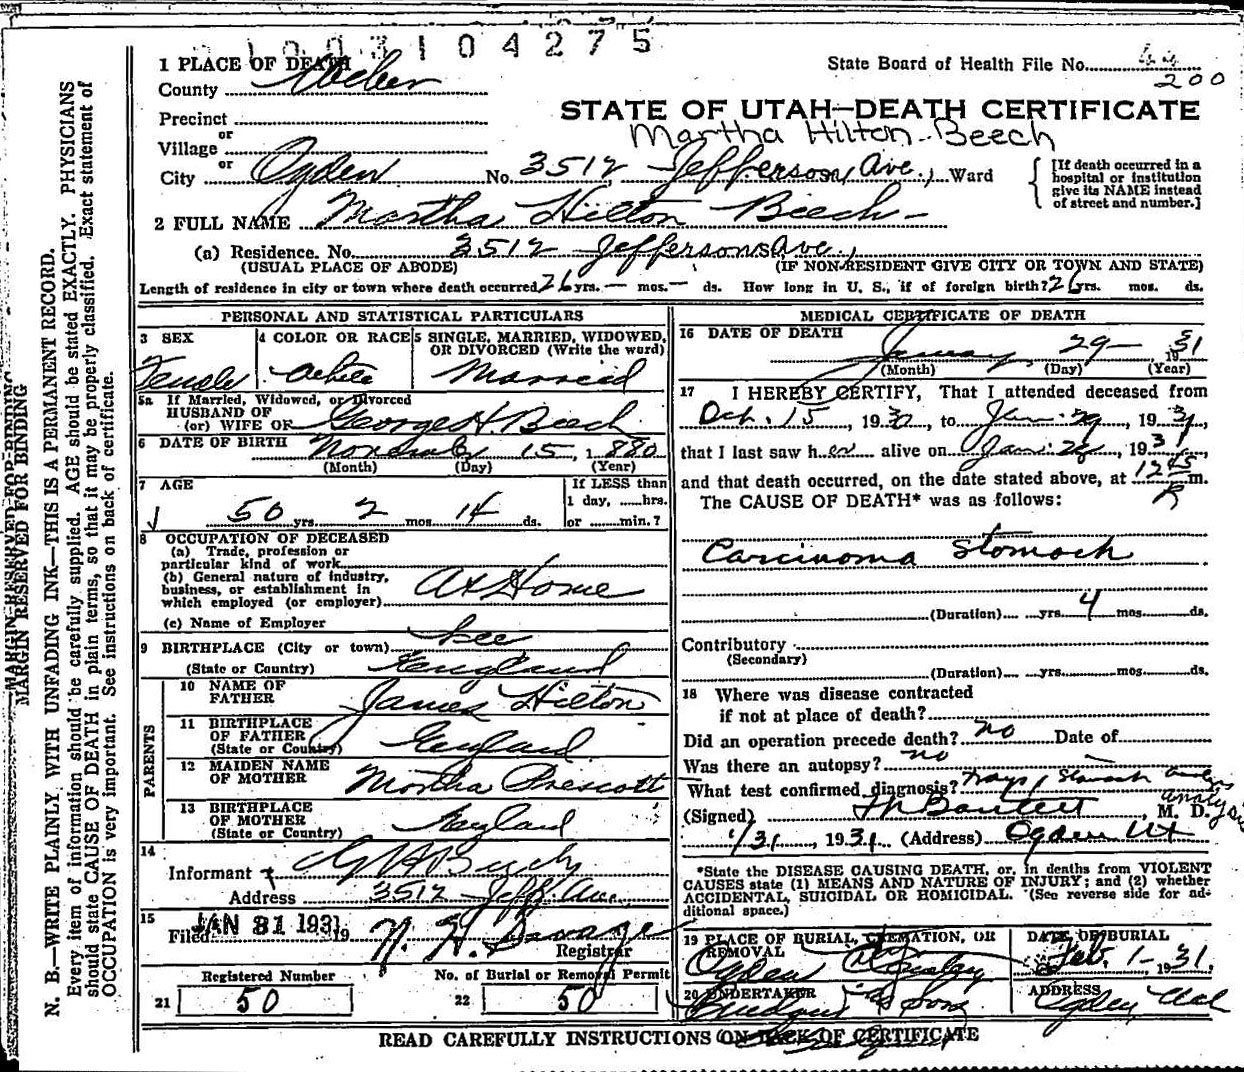 1003104275
1 PLACE OF DEATH
County Weber
State Board of Health File No. 44
200
STATE OF UTAH—DEATH CERTIFICATE
Martha Hilton Beech
Precinct
or
Village
or
City Ogden No. 3512 Jefferson Ave., Ward
[If death occurred in a
hospital or institution
give its NAME instead
of street and number.]
2 FULL NAME Martha Hilton Beech
(a) Residence. No. 3512 Jefferson Ave.,
(USUAL PLACE OF ABODE) (IF NON-RESIDENT GIVE CITY OR TOWN AND STATE)
Length of residence in city or town where death occurred 26 yrs. — mos. — ds. How long in U. S., if of foreign birth? 26 yrs. mos. ds.
PERSONAL AND STATISTICAL PARTICULARS
3 SEX 4 COLOR OR RACE 5 SINGLE, MARRIED, WIDOWED,
OR DIVORCED (Write the word)
Female White Married
5a If Married, Widowed, or Divorced
HUSBAND OF
(or) WIFE OF George H. Beech
6 DATE OF BIRTH November 15, 1880
(Month) (Day) (Year)
7 AGE If LESS than
1 day, hrs.
50 yrs. 2 mos. 14 ds. or min.?
8 OCCUPATION OF DECEASED
(a) Trade, profession or
particular kind of work
(b) General nature of industry,
business, or establishment in
which employed (or employer) At Home
(c) Name of Employer
9 BIRTHPLACE (City or town)
(State or Country) England
PARENTS
10 NAME OF
FATHER James Hilton
11 BIRTHPLACE
OF FATHER
(State or Country) England
12 MAIDEN NAME
OF MOTHER Martha Prescott
13 BIRTHPLACE
OF MOTHER
(State or Country) England
14
Informant G H Beech
Address 3512 Jeff. Ave.
15 JAN 31 1931
Filed 19
Registrar
Registered Number No. of Burial or Removal Permit
21 50 22 50
MEDICAL CERTIFICATE OF DEATH
16 DATE OF DEATH
January 29 1931
(Month) (Day) (Year)
17 I HEREBY CERTIFY, That I attended deceased from
Oct. 15, 1930, to Jan. 29, 1931,
that I last saw her alive on Jan. 28, 1931,
and that death occurred, on the date stated above, at 12 45 P m.
The CAUSE OF DEATH* was as follows:
Carcinoma Stomach
(Duration) yrs. 4 mos. ds.
Contributory
(Secondary)
(Duration) yrs. mos. ds.
18 Where was disease contracted
if not at place of death?
Did an operation precede death? no Date of
Was there an autopsy? no
What test confirmed diagnosis? Xrays, Stomach analysis
(Signed) Bartlett, M. D.
1/31, 1931. (Address) Ogden Ut
*State the DISEASE CAUSING DEATH, or, in deaths from VIOLENT
CAUSES state (1) MEANS AND NATURE OF INJURY; and (2) whether
ACCIDENTAL, SUICIDAL OR HOMICIDAL. (See reverse side for ad-
ditional space.)
19 PLACE OF BURIAL, CREMATION, OR DATE OF BURIAL
REMOVAL
Ogden Feb. 1-, 1931.
20 UNDERTAKER ADDRESS
& Sons Ogden Utah
READ CAREFULLY INSTRUCTIONS ON BACK OF CERTIFICATE
MARGIN RESERVED FOR BINDING
MARGIN RESERVED FOR BINDING
N. B.—WRITE PLAINLY, WITH UNFADING INK—THIS IS A PERMANENT RECORD.
Every item of information should be carefully supplied. AGE should be stated EXACTLY. PHYSICIANS
should state CAUSE OF DEATH in plain terms, so that it may be properly classified. Exact statement of
OCCUPATION is very important. See instructions on back of certificate.